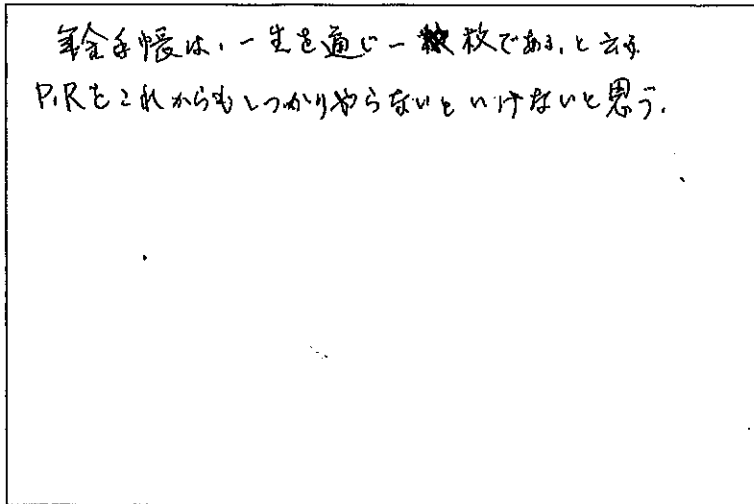 年金手帳は、一生を通じ一枚である、と云う
P.Rをこれからもしっかりやらないといけないと思う.